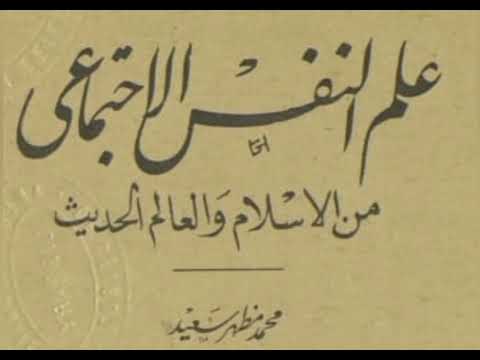 علم النفس الاجتماعى
من الاسلام والعالم الحديث
محمد مظهر سعيد